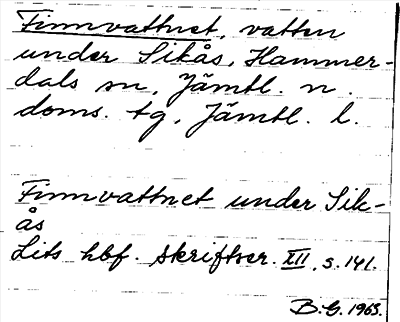 Finnvattnet, vatten
under Sikås, Hammer-
dals sn, Jämtl. n.
doms. tg, Jämtl. l.
Finnvattnet under Sik-
ås
Lits hbf. skriftser. XII, s. 141.
B.G. 1963.